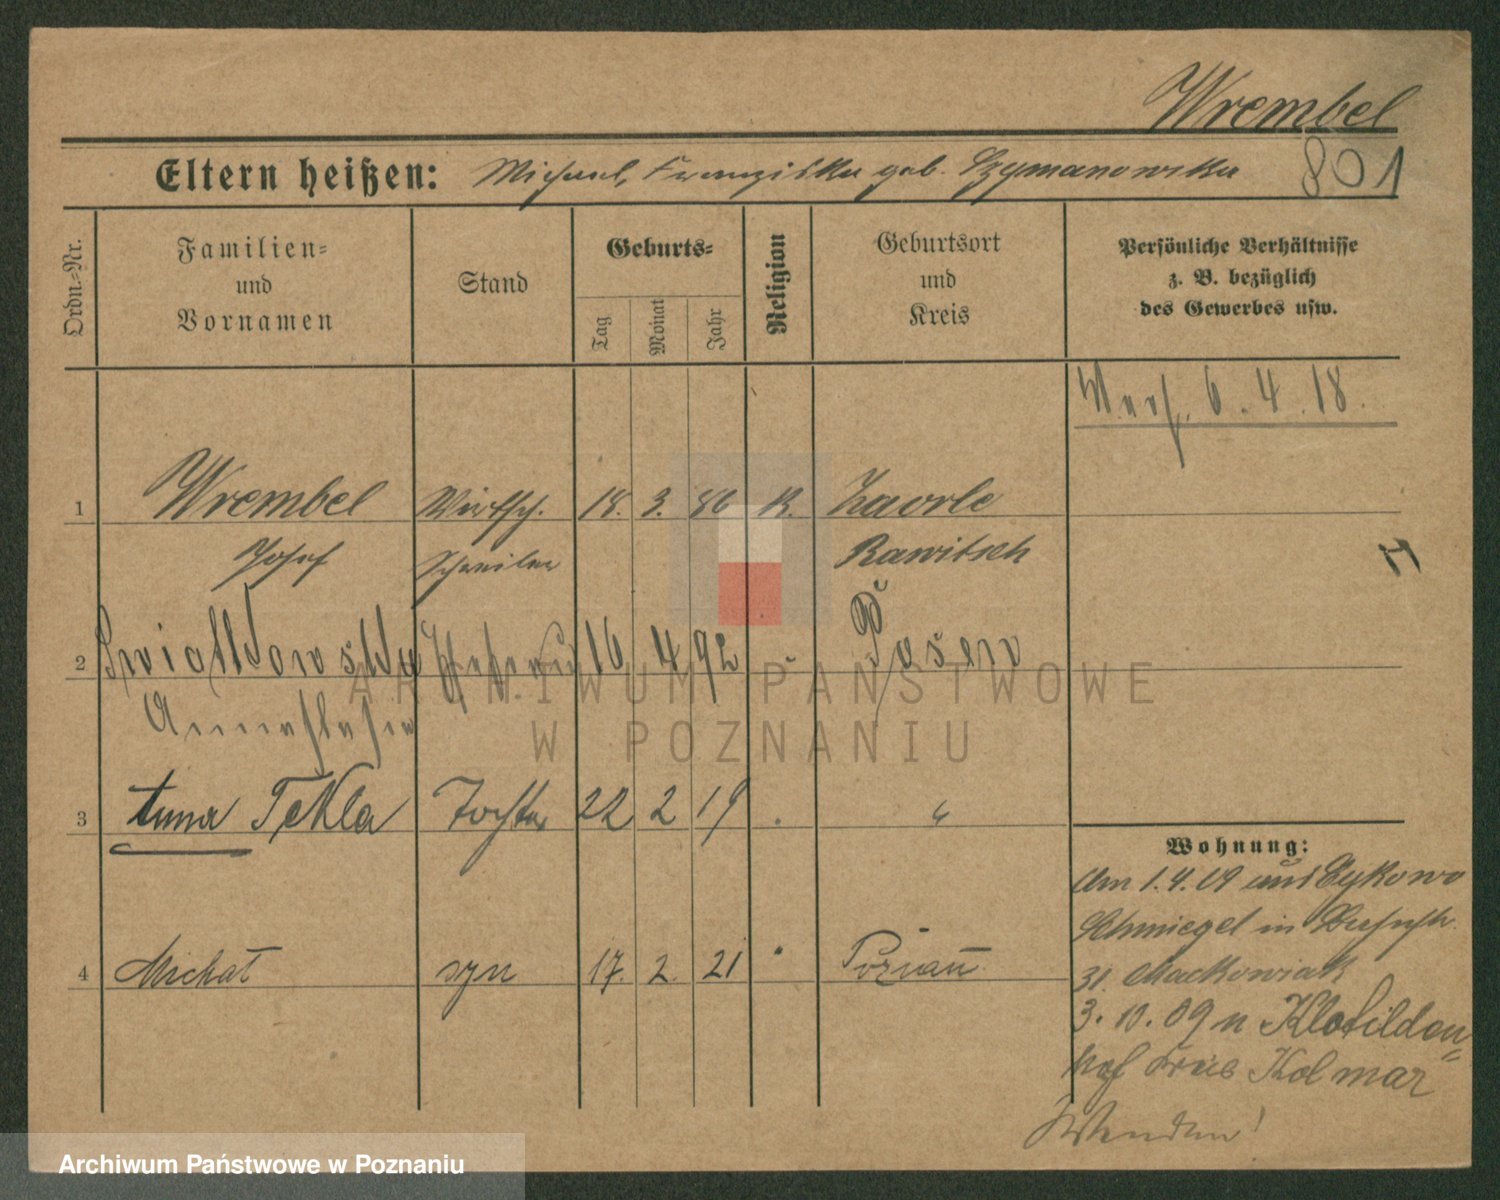 Wrembel
801
Eltern heißen: Michael, Franziska geb. Szymanowska
Ordn.=Nr.
Familien=
und
Vornamen
Stand
Geburts=
Tag
Monat
Jahr
Religion
Geburtsort
und
Kreis
Persönliche Verhältnisse
z. B. bezüglich
des Gewerbes usw.
6.4.18.
1 Wrembel Wirtsch. 18. 3. 86 K. Zaorle
Josef Schreiber Rawitsch
2 Swiatkowska Ehefrau 16 4 92 Posen
Annastasia
3 Anna Tekla Tochter 22 2 19 "
4 Michał syn 17. 2. 21 " Poznań
Wohnung:
Am 1.4.09 aus Cykowo
Schmiegel in
31. Maćkowiak
3.10.09 n Klotilden=
hof Kreis Kolmar
Wenden!
ARCHIWUM PAŃSTWOWE
W POZNANIU
Archiwum Państwowe w Poznaniu